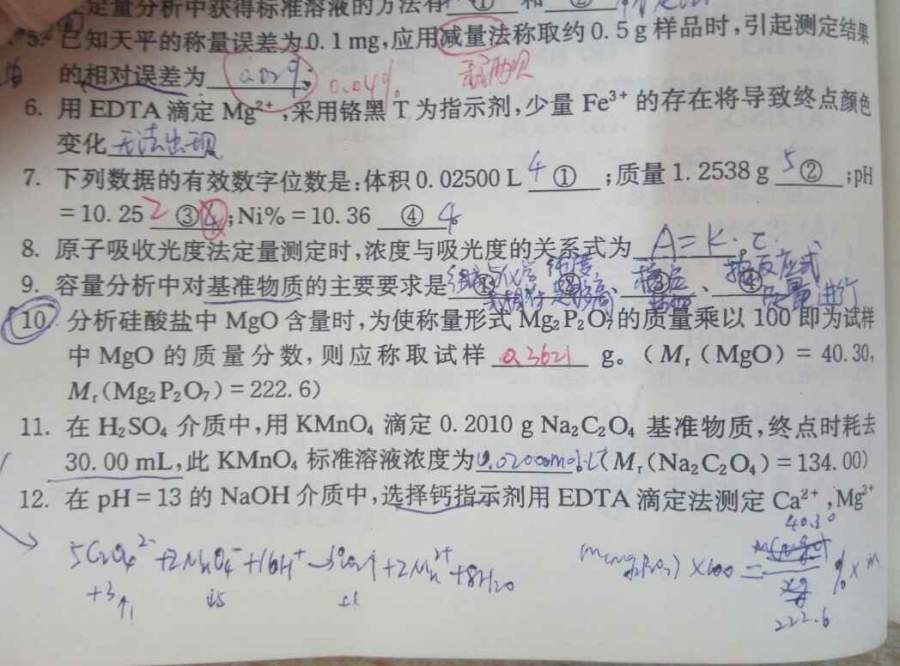 定量分析中获得标准溶液的方法有 ① 和 ②
5. 已知天平的称量误差为0.1 mg,应用减量法称取约0.5 g样品时,引起测定结果
的相对误差为 0.04%
6. 用EDTA滴定Mg²⁺,采用铬黑T为指示剂,少量Fe³⁺的存在将导致终点颜色
变化 无法出现
7. 下列数据的有效数字位数是:体积0.02500 L 4 ① ;质量1.2538 g 5 ② ;pH
=10.25 2 ③ 4 ;Ni%=10.36 ④ 4
8. 原子吸收光度法定量测定时,浓度与吸光度的关系式为 A=K·c
9. 容量分析中对基准物质的主要要求是 ① 、 ② 、 ③ 、 ④
10. 分析硅酸盐中MgO含量时,为使称量形式Mg₂P₂O₇的质量乘以100即为试样
中MgO的质量分数,则应称取试样 0.3621 g。(Mᵣ(MgO)=40.30,
Mᵣ(Mg₂P₂O₇)=222.6)
11. 在H₂SO₄介质中,用KMnO₄滴定0.2010 g Na₂C₂O₄基准物质,终点时耗去
30.00 mL,此KMnO₄标准溶液浓度为 0.02000mol·L (Mᵣ(Na₂C₂O₄)=134.00)
12. 在pH=13的NaOH介质中,选择钙指示剂用EDTA滴定法测定Ca²⁺,Mg²⁺
5C₂O₄²⁻+2MnO₄⁻+16H⁺→ +2Mn²⁺+8H₂O
+3
40.30
m(Mg₂P₂O₇)×100= % × m
222.6